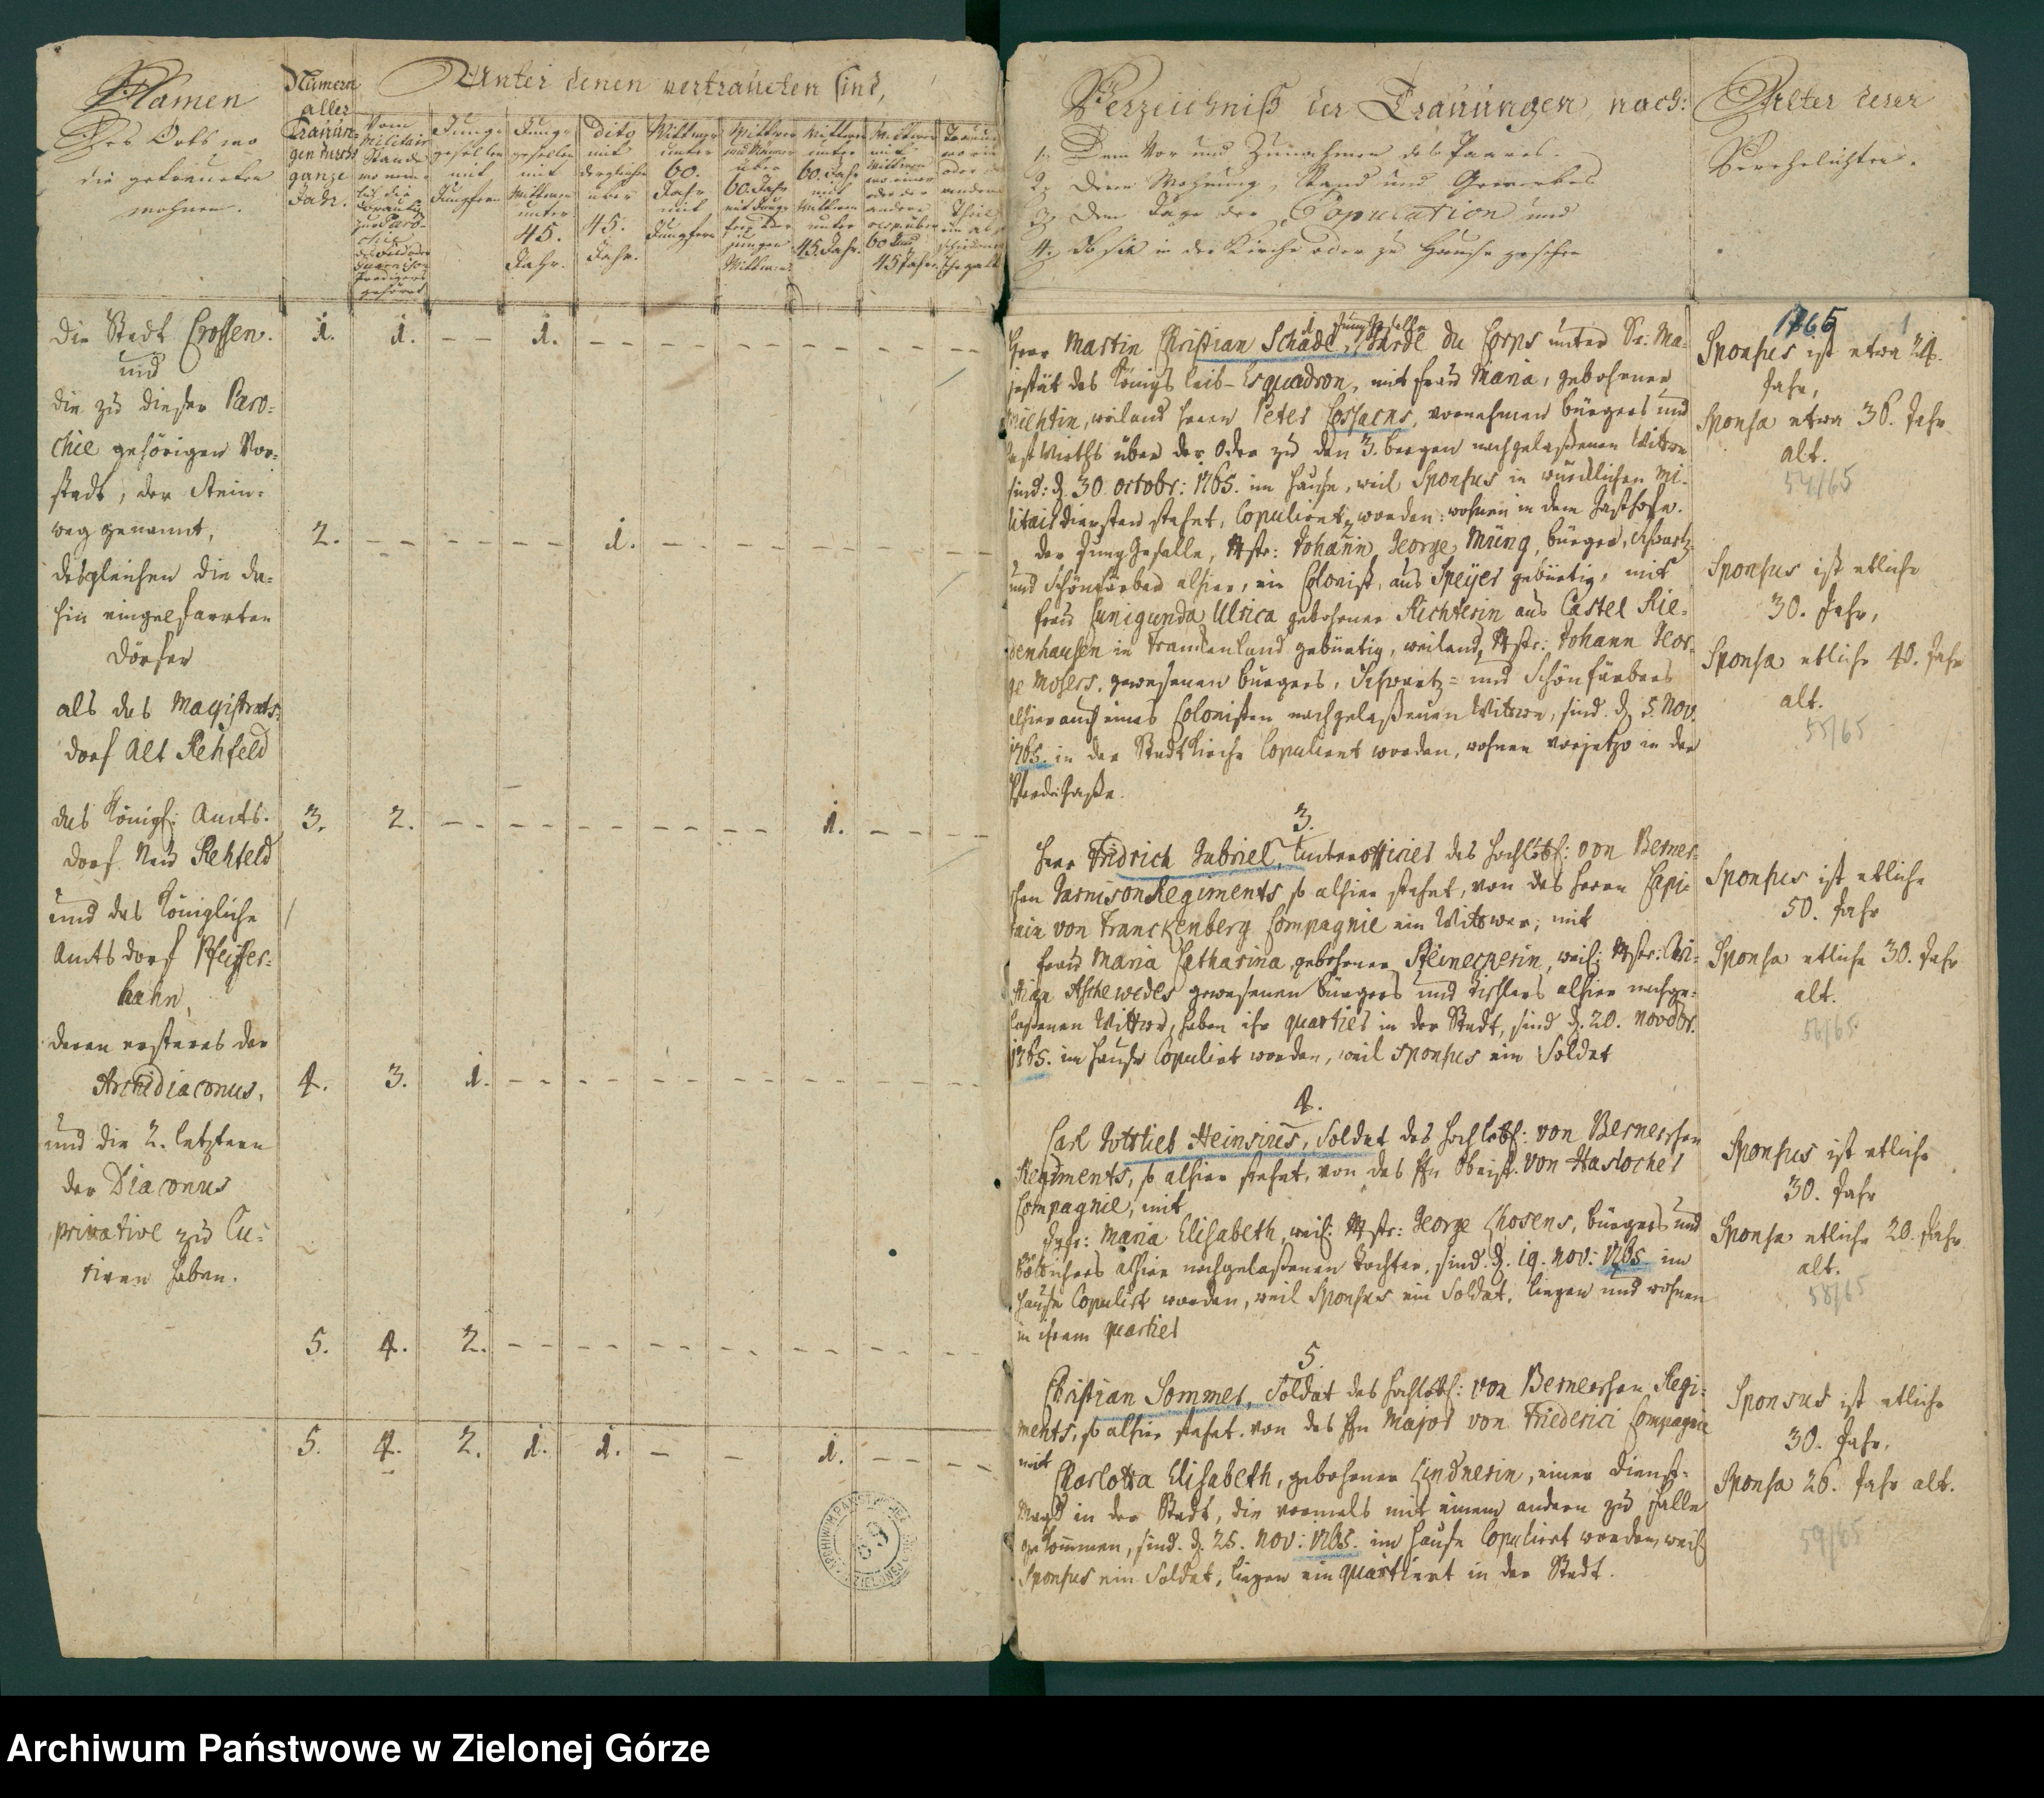 Namen
Des Orts wo
die getraueten
wohnen.
Numern
aller
Trauun-
gen durchs
ganze
Jahr.
Unter denen vertraueten sind,
Vom
Militair
Stande
Junge
gesellen
mit
Jungfern
Junge
gesellen
mit
Wittwen
unter
45.
Jahr.
Dito
mit
dergleichen
über
45.
Jahr.
Wittwer
unter
60.
Jahr
mit
Jungfern
Wittwer
über
60. Jahr
jungen
Wittwen
Wittwer
unter
60. Jahr
mit
Wittwen
unter
45. Jahr.
Wittwer
mit
Wittwen
wo einer
oder der
andere
60 und
45 Jahr.
die Stadt Crossen.
und
die zu dieser Paro-
chie gehörigen Vor-
stadt, der Stein-
weg genannt,
desgleichen die da-
hin eingepfarrten
Dörfer
als das Magistrats-
dorf Alt Rehfeld
das Königl: Amts-
dorf Neu Rehfeld
und das Königliche
Amtsdorf Pfeiffer-
hahn,
deren ersteres der
Archidiaconus,
und die 2. letztern
der Diaconus
privative zu Cu-
riren haben.
1. 1. - - 1. - - - - - -
2. - - - - 1. - - - - -
3. 2. - - - - - - 1. - - -
4. 3. 1. - - - - - - - -
5. 4. 2. - - - - - - - -
5. 4. 2. 1. 1. - - 1. - - -
69
Verzeichniß der Trauungen nach:
1. Dem Vor und Zunahmen des Paares.
2. Deren Wohnung, Stand und Gewerbes
3. Dem Tage der Copulation und
4. Ob sie in der Kirche oder zu Hause geschehen
Alter derer
Verehelichten.
1765 1
1
Herr Martin Christian Schade, JungGeselle, Garde du Corps unter Sr. Ma-
jestät des Königs Leib-Esquadron, mit Frau Maria, gebohrner
weiland Herrn Peter vornehmen Bürgers und
Gast Wirths über der Oder zu den 3. Bergen nachgelaßenen Witwe
sind: d. 30. Octobr: 1765. im Hause, weil Sponsus in würcklichen Mi-
litairdiensten stehet, Copuliret worden: wohnen in dem Gasthofe.
Sponsus ist etwa 24.
Jahr,
Sponsa etwa 36. Jahr
alt.
54/65
2
Der JungGeselle, Mstr: Johann George Müng, Bürger, Schwartz-
und Schönfärber alhier, ein Colonist, aus Speyer gebürtig, mit
Frau Cunigunda Ulrica gebohrner Richterin aus Castel Rie-
denhausen in Franckenland gebürtig, weiland Mstr: Johann Geor-
ge Mosers, gewesenen Bürgers, Schwartz- und Schönfärbers
alhier auch eines Colonisten nachgelaßenen Witwe, sind d. 5. Nov.
1765. in der Stadt Kirche Copuliret worden, wohnen vorjetzo in der
Pferde Gaße.
Sponsus ist etliche
30. Jahr,
Sponsa etliche 40. Jahr
alt.
55/65
3.
Herr Fridrich Gabriel, Unterofficier des Hochlöbl: von Berner-
schen Garnison Regiments, so alhier stehet, von des Herrn Capi-
tain von Franckenberg Compagnie ein Witwer, mit
Frau Maria Catharina, gebohrner Steineckerin, weil: Mstr: Chri-
stian Aschewedes gewesenen Bürgers und Tischlers alhier nachge-
laßenen Wittwe, haben ihr quartier in der Stadt, sind d. 20. Novbr.
1765. im Hause Copuliret worden, weil Sponsus ein Soldat
Sponsus ist etliche
50. Jahr
Sponsa etliche 30. Jahr
alt.
56/65
4.
Carl Gottlieb Heinsius, Soldat des Hochlöbl: von Bernerschen
Regiments, so alhier stehet, von des Hn Obrist. von Haslocher
Compagnie, mit
Jgfr: Maria Elisabeth, weil: Mstr: George Chosens, Bürgers und
Böttichers alhier nachgelaßenen Tochter, sind d. 19. Nov: 1765 im
Hause Copulirt worden, weil Sponsus ein Soldat, liegen und wohnen
in ihrem quartier
Sponsus ist etliche
30. Jahr
Sponsa etliche 20. Jahr
alt.
58/65
5.
Christian Sommer, Soldat des Hochlöbl: von Bernerschen Regi-
ments, so alhier stehet, von des Hn Major von Friederici Compagnie
mit
Charlotta Elisabeth, gebohrner Lindnerin, einer Dienst-
Magd in der Stadt, die vormals mit einem andern zu Falle
gekommen, sind d. 25. Nov: 1765. im Hause Copuliret worden, weil
Sponsus ein Soldat, liegen einquartieret in der Stadt.
Sponsus ist etliche
30. Jahr,
Sponsa 26. Jahr alt.
59/65
Archiwum Państwowe w Zielonej Górze